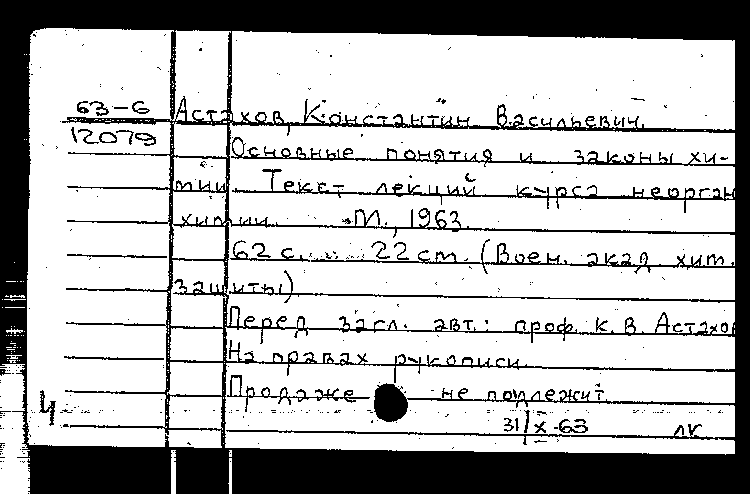 63-6 Астахов, Константин Васильевич.
12079
Основные понятия и законы хи-
мии. Текст лекций курса неорган
химии. М., 1963.
62 с. 22 cm. (Воен. акад. хим.
защиты)
Перед загл. авт.: проф. К. В. Астахов
На правах рукописи.
Продаже не подлежит
31/X-63 ЛК
4